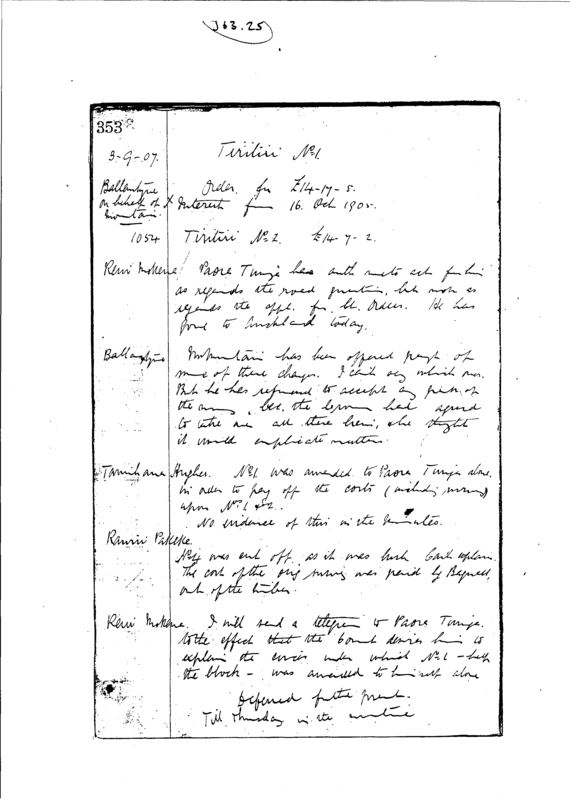 J63.25
353
3-9-07. Tiritiri No 1.
Ballantyne Order for £14-17-5.
on behalf of Interest from 16. Oct 1905.
1054 Tiritiri No 2. £14-7-2.
Rewi Mokena Paora Tunga has auth me to act for him
as regards the road question, but not as
regards the appl. for Ct. Orders. He has
gone to Auckland today.
Ballantyne has been offered of
some of these charges. I can't say which ones.
But he has refused to accept any of
the , bec. the had agreed
to take over all these liens, & he thought
it would complicate matters.
Tamihana Hughes. No 1 was awarded to Paora Tunga alone
in order to pay off the costs (including survey)
upon Nos 1 & 2.
No evidence of this in the Minutes.
Rawiri
No 4 was cut off, as it was bush. Can't explain.
The cost of the orig survey was paid by Bagnall,
out of the timber.
Rewi Mokena. I will send a telegram to Paora Tunga.
to the effect that the Court desires him to
explain the under which No 1 - half
the block - was awarded to himself alone
Deferred for the present.
Till Thursday in the